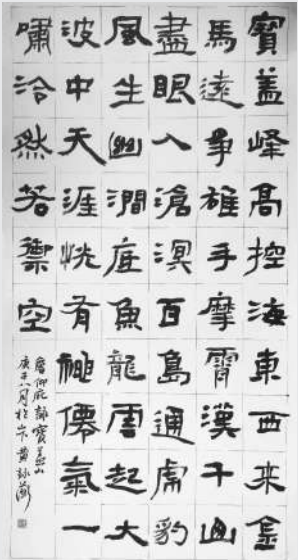 寶蓋峰高控海東西來金
馬遠爭雄手摩霄漢千山
盡眼入滄溟百島通虎豹
風生幽澗底魚龍雲起大
波中天涯恍有神僊氣一
嘯泠然若禦空
詹仰庇詠寶蓋山
庚子八月於 黄